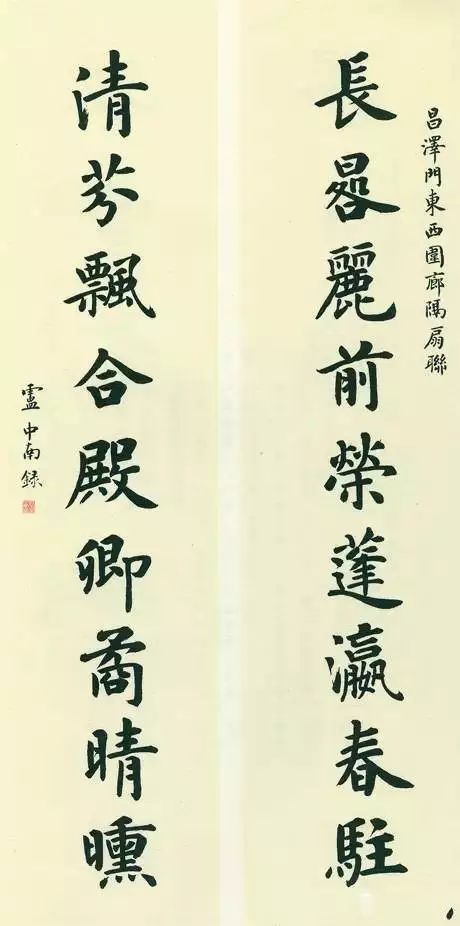 昌澤門東西圍廊隔扇聯
長晷麗前榮蓬瀛春駐
清芬飄合殿卿矞晴曛
盧中南錄